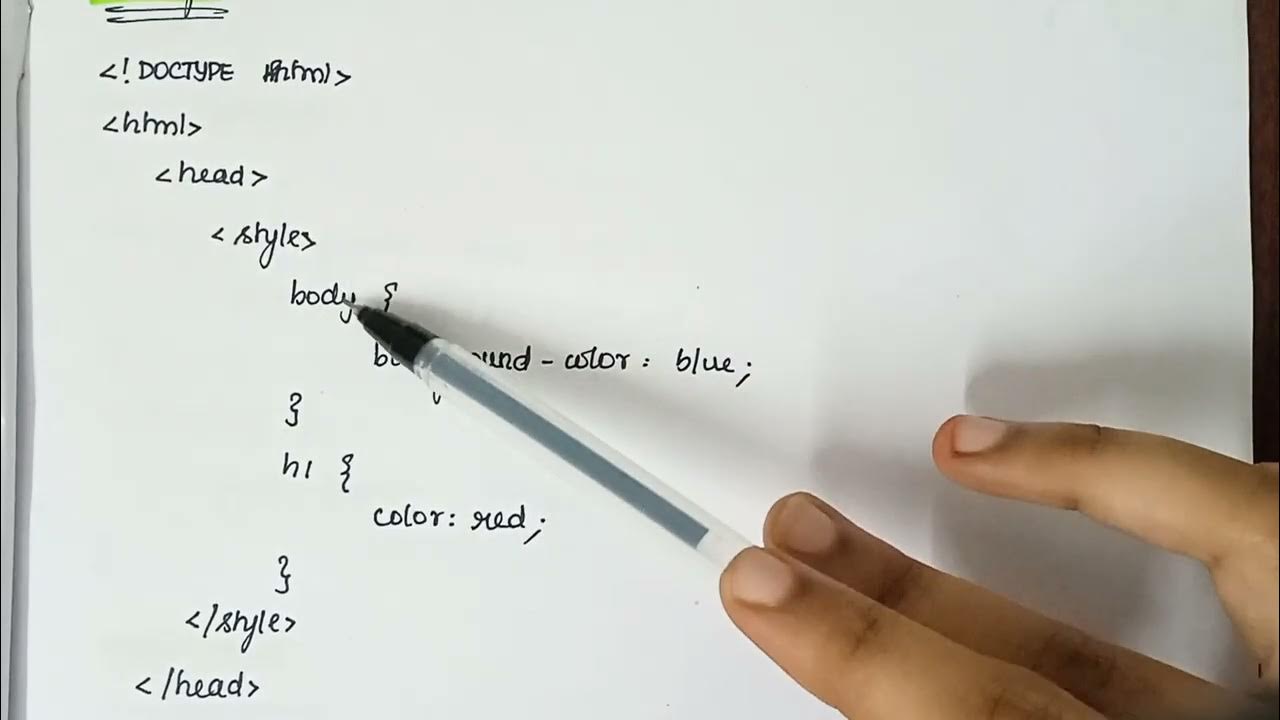 <!DOCTYPE html>
<html>
<head>
<style>
body {
-color: blue;
}
h1 {
color: red;
}
</style>
</head>